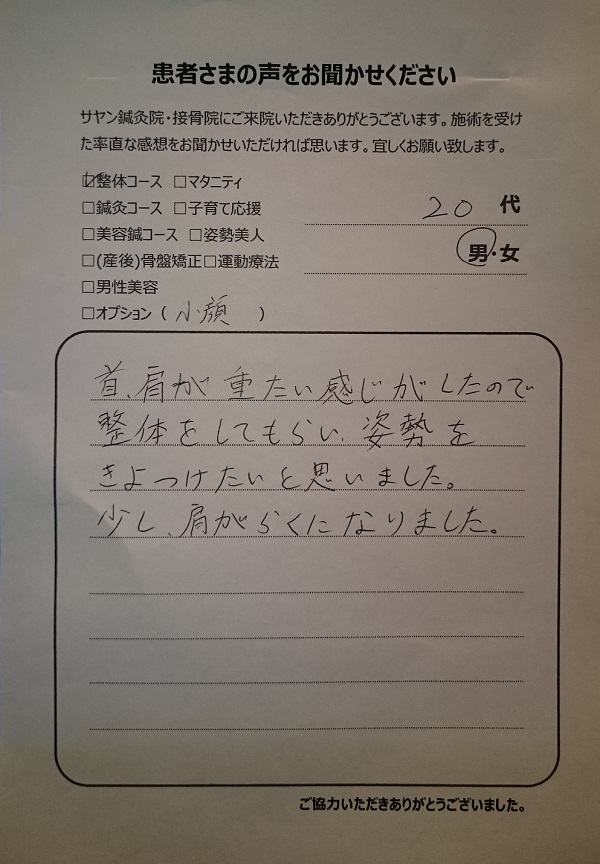 患者さまの声をお聞かせください
サヤン鍼灸院・接骨院にご来院いただきありがとうございます。施術を受け
た率直な感想をお聞かせいただければ思います。宜しくお願い致します。
☑整体コース □マタニティ
□鍼灸コース □子育て応援
□美容鍼コース □姿勢美人
□(産後)骨盤矯正□運動療法
□男性美容
□オプション（小顔）
20 代
男・女
首、肩が重たい感じがしたので
整体をしてもらい、姿勢を
きよつけたいと思いました。
少し、肩がらくになりました。
ご協力いただきありがとうございました。